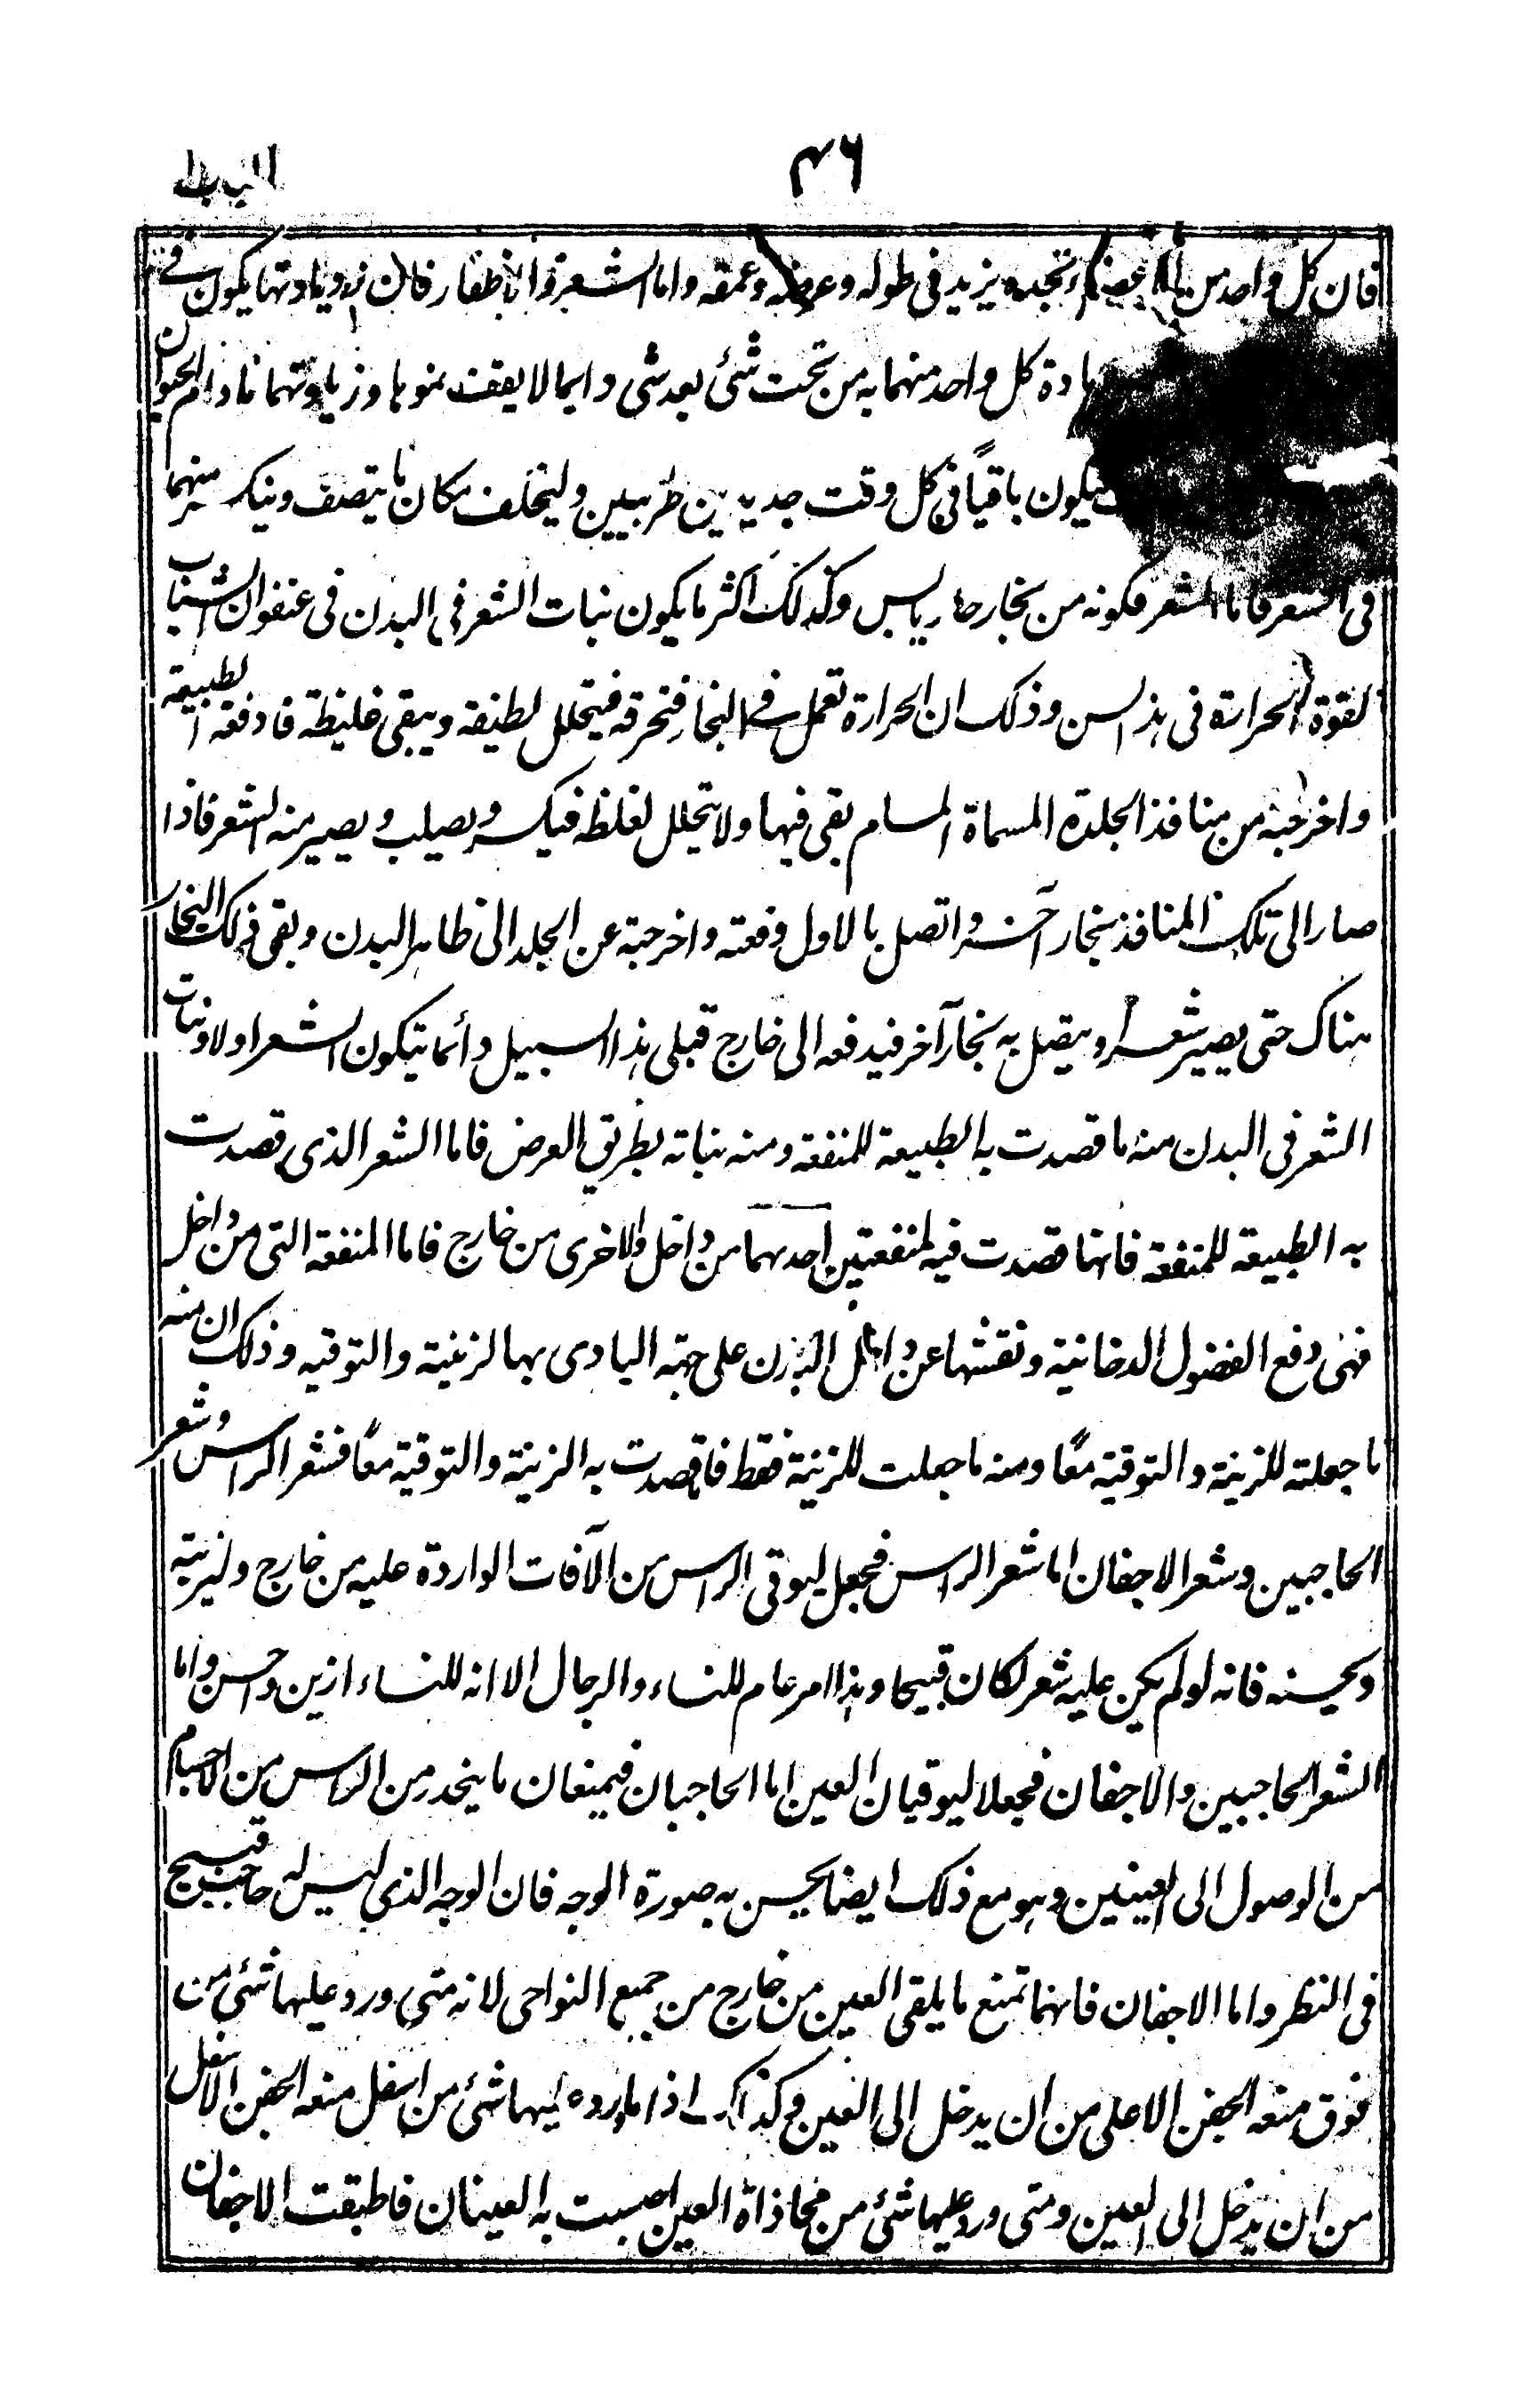 ٤٦
فان كل واحد من الاعضاء تجده يزيد فى طوله وعرضه وعمقه واما الشعر والاظفار فان زيادتها يكون فى
مادة كل واحد منهما به من تحت شئ بعد شى دايما لا يقف نموها وزيادتهما مادام الحيوان
فيكون باقيًا فى كل وقت جديدين طريين وليخلف مكان ما يتصف وينكسر منهما
فى الشعر فاما الشعر فكونه من بخار حار يابس وكذلك اكثر ما يكون نبات الشعر فى البدن فى عنفوان الشباب
لقوة الحرارة فى هذا السن وذلك ان الحرارة تعمل فى البخار فتحرقه فيتحلل لطيفه ويبقى غليظة فاذا دفعه الطبيعة
واخرجته من منافذ الجلدة المسماة المسام بقى فيها ولا يتحلل لغلظه فيكسر ويصلب ويصير منه الشعر فاذا
صار الى تلك المنافذ بخار آخر واتصل بالاول دفعته واخرجته عن الجلد الى ظاهر البدن وبقى ذلك البخار
هناك حتى يصير شعرا ويتصل به بخار آخر فيدفعه الى خارج فعلى هذا السبيل دائما يتكون الشعر اولا ونبات
الشعر فى البدن منه ما قصدت به الطبيعة للمنفعة ومنه نباته بطريق العرض فاما الشعر الذى قصدت
به الطبيعة للمنفعة فانها قصدت فيه لمنفعتين احدهما من داخل والاخرى من خارج فاما المنفعة التى من داخل
فهى دفع الفضول الدخانية ونقشها عن داخل البدن على جهة البادى بها لزينة والتوقيه وذلك ان منه
ما جعلته للزينة والتوقية معًا ومنه ما جعلت للزينة فقط فما قصدت به الزينة والتوقية معًا فشعر الراس وشعر
الحاجبين وشعر الاجفان اما شعر الراس فجعل ليوقى الراس من الآفات الواردة عليه من خارج وليزينه
ويحسنه فانه لو لم يكن عليه شعر لكان قبيحا وهذا امر عام للنساء والرجال الا انه للنساء ازين واحسن واما
الشعر الحاجبين والاجفان فجعلا ليوقيان العين اما الحاجبان فيمنعان ما ينحدر من الراس من الاجسام
من الوصول الى العينين وهو مع ذلك ايضا يحسن به صورة الوجه فان الوجه الذى ليس له حاجب قبيح
فى النظر واما الاجفان فانهما تمنع ما يلقى العين من خارج من جميع النواحى لانه متى ورد عليها شئ من
فوق منعه الجفن الاعلى من ان يدخل الى العين وكذلك اذا ما ورد عليها شئ من اسفل منعه الجفن الاسفل
من ان يدخل الى العين ومتى ورد عليها شئ من محاذاة العين احسبت به العينان فاطبقت الاجفان